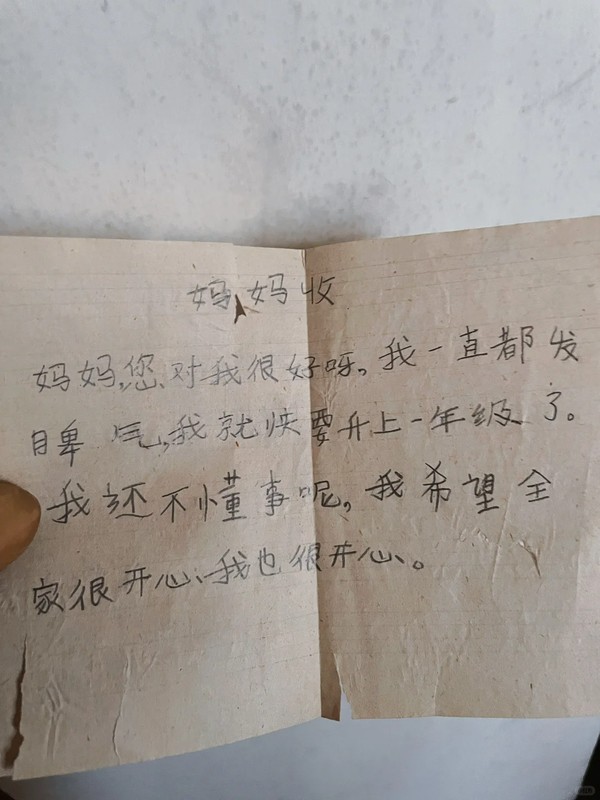 妈妈收
妈妈,您对我很好呀。我一直都发
脾气,我就快要升上一年级了。
我还不懂事呢,我希望全
家很开心、我也很开心、。